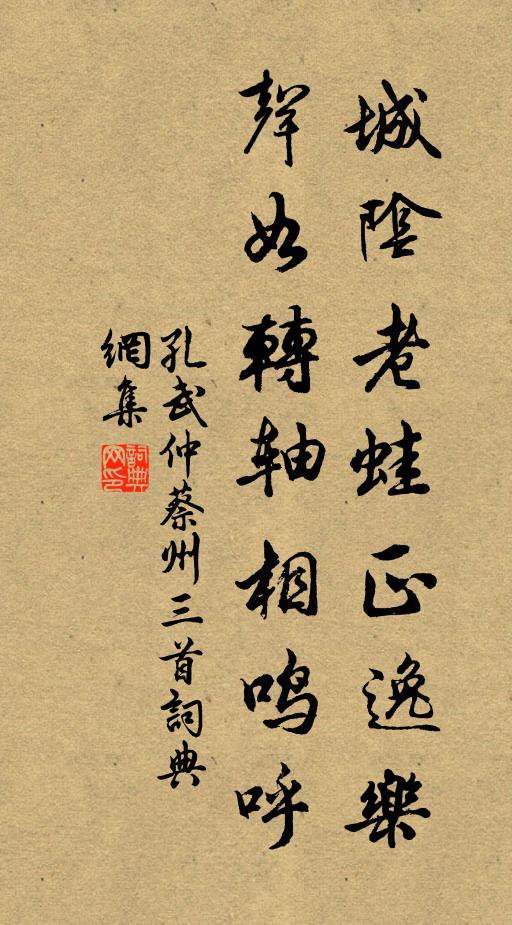 城陰老蛙正逸樂
聲如轉軸相鳴呼
孔武仲蔡州三首詞典
網集
詞典
网印